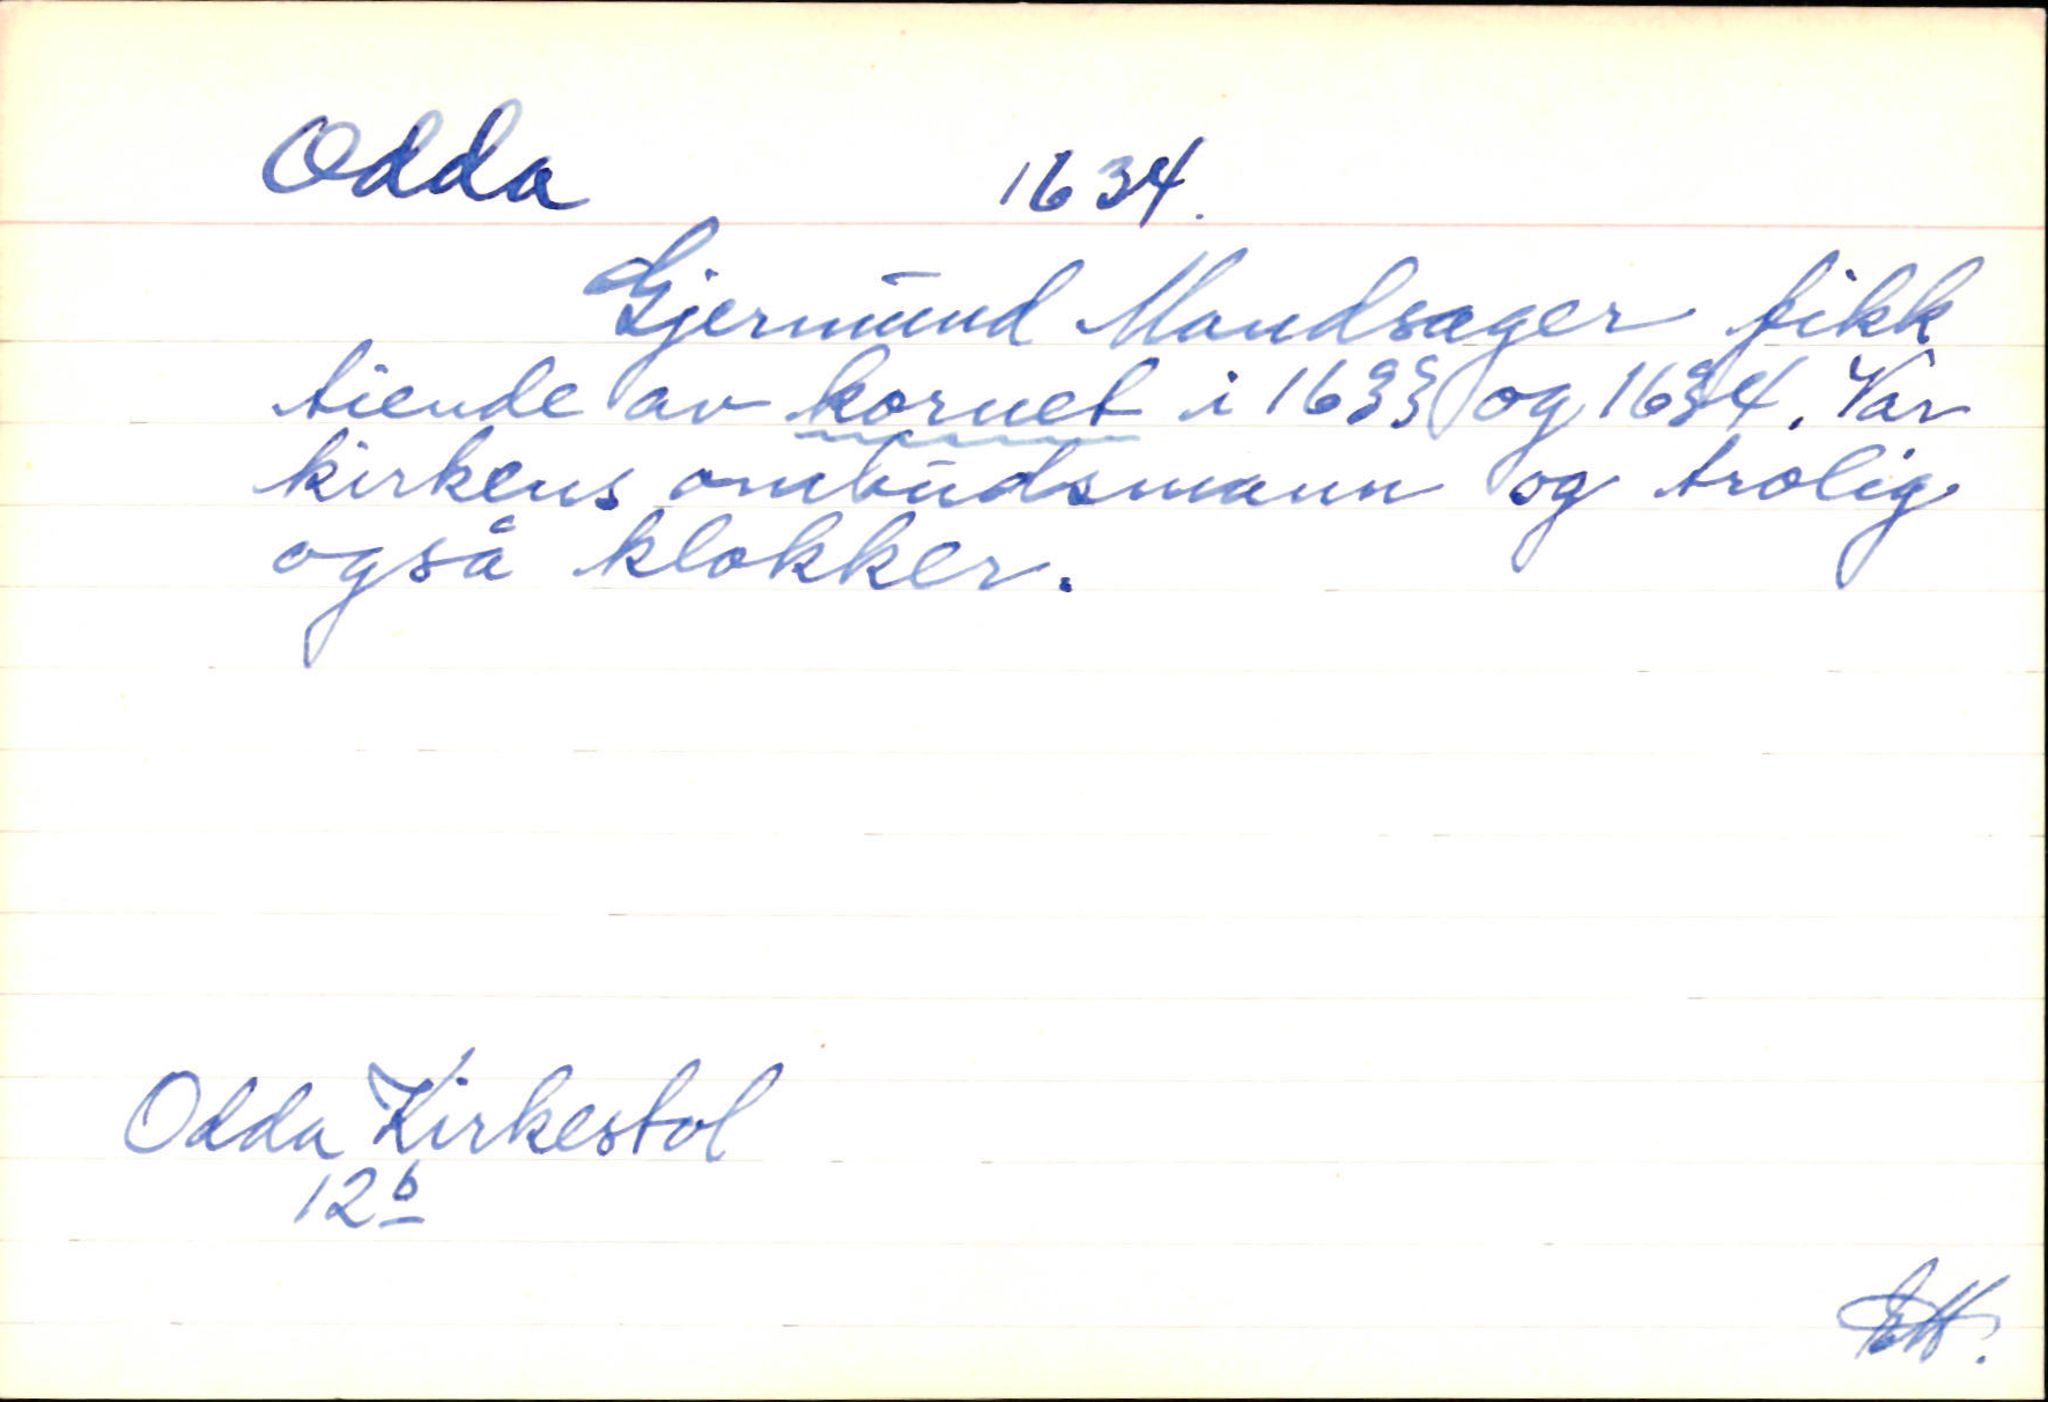 Odda 1634.
Gjermund Mandsager fikk
tiende av kornet i 1633 og 1634. Var
kirkens ombudsmann og trolig
også klokker.
Odda Kirkestol
12b
EH.